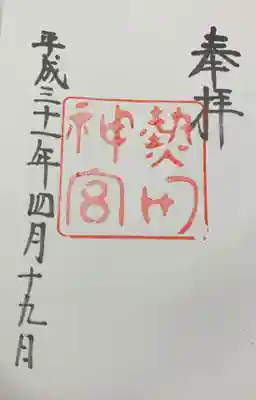 奉拝
熱田
神宮
平成三十一年四月十九日